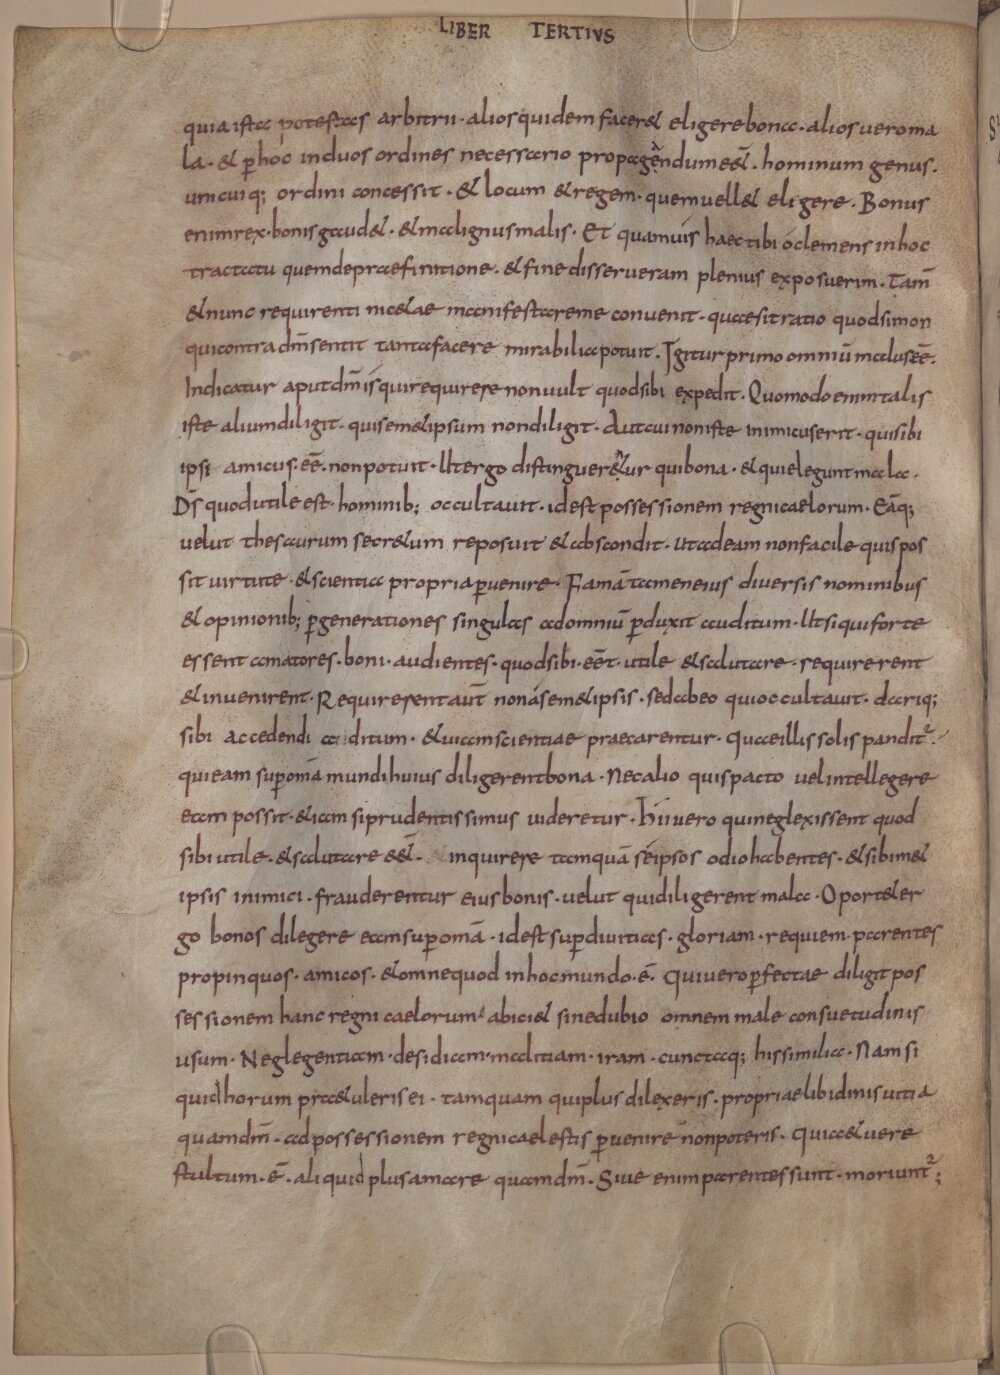 LIBER TERTIVS
quia ista potestas arbitrii · alios quidem facer& eligere bona · alios uero ma
la · & p̄ hoc induos ordines necessario propagandum eē · hominum genus ·
unicuiq; ordini concessit · & locum & regem · quem uell& eligere · Bonus
enim rex · bonis gaud& · & malignus malis · Et quamuis haec tibi o clemens in hoc
tractatu quem de praefinitione · & fine disserueram plenius exposuerim · Tam̄
& nunc requirenti nic&ae manifestare me conuenit · quae sit ratio quod simon
qui contra dm̄ sentit tanta facere mirabilia potuit · Igitur primo omniū malus eē ·
Indicatur aput dm̄ is qui requirere non uult quod sibi expedit · Quomodo enim talis
iste alium diligit · qui sem&ipsum non diligit · Aut cui non iste inimicus erit · qui sibi
ipsi amicus · eē · non potuit · Ut ergo distinguer&ur qui bona · & qui elegunt mala ·
Ds̄ quod utile est · hominib; occultauit · id est possessionem regni caelorum · Eāq;
uelut thesaurum secr&um reposuit & abscondit · ut ad eam non facile quis pos
sit uirtute · & scientia propria p̄uenire · Famā tamen eius diversis nominibus
& opinionib; p̄ generationes singulas ad omniū p̄duxit auditum · Ut si qui forte
essent amatores · boni · audientes · quod sibi · eēt · utile & salutare · requirerent
& inuenirent · Requirerent aut̄ non a sem&ipsis · sed ab eo qui occultauit · dariq;
sibi accedendi aditum · & uiam scientiae praecarentur · Quae illis solis pandit᷑ ·
qui eam sup̄ omā mundi huius diligerent bona · Nec alio quis pacto uel intellegere
eam possit · & iam si prudentissimus uideretur · Hii uero qui neglexissent quod
sibi utile · & salutare eē& · inquirere tamquā seipsos odio habentes · & sibim&
ipsis inimici · frauderentur eius bonis · uelut qui diligerent mala · Oport& er
go bonos dilegere eam sup̄ omā · id est sup̄ diuitias · gloriam · requiem · parentes
propinquos · amicos · & omne quod in hoc mundo · ē · Qui uero p̄fectae diligit pos
sessionem hanc regni caelorum · abici& sine dubio omnem male consuetudinis
usum · Neglegentiam · desidiam · malitiam · iram · cunctaq; his similia · Nam si
quid horum prae&uleris ei · tamquam qui plus dilexeris · propriae libidinis uitia
quam dm̄ · ad possessionem regni caelestis p̄uenire non poteris · Quia & uere
stultum · ē · aliquid plus amare quam dm̄ · Siue enim parentes sunt · moriunt᷑;